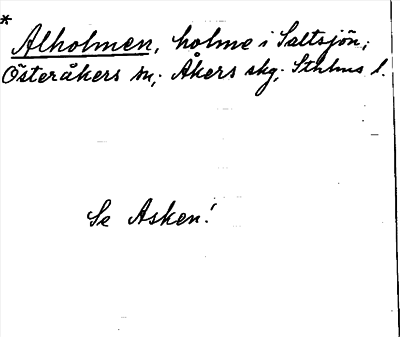 *
Alholmen, holme i Saltsjön;
Österåkers sn; Åkers skg; Sthlms l.
Se Asken!